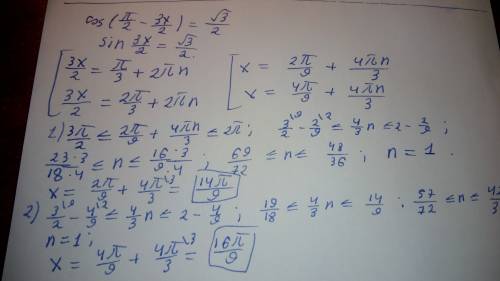 cos(π/2 - 3x/2) = √3/2
sin 3x/2 = √3/2.
[ 3x/2 = π/3 + 2πn
3x/2 = 2π/3 + 2πn
[ x = 2π/9 + 4πn/3
x = 4π/9 + 4πn/3
1) 3π/2 ≤ 2π/9 + 4πn/3 ≤ 2π; 3\9/2 - 2\2/9 ≤ 4/3 n ≤ 2 - 2/9;
23·3/18·4 ≤ n ≤ 16·3/9·4; 69/72 ≤ n ≤ 48/36; n = 1.
x = 2π/9 + 4π\3/3 = 14π/9
2) 3\9/2 - 4\2/9 ≤ 4/3 n ≤ 2 - 4/9; 19/18 ≤ 4/3 n ≤ 14/9; 57/72 ≤ n ≤ 42/3
n = 1;
x = 4π/9 + 4π\3/3 = 16π/9